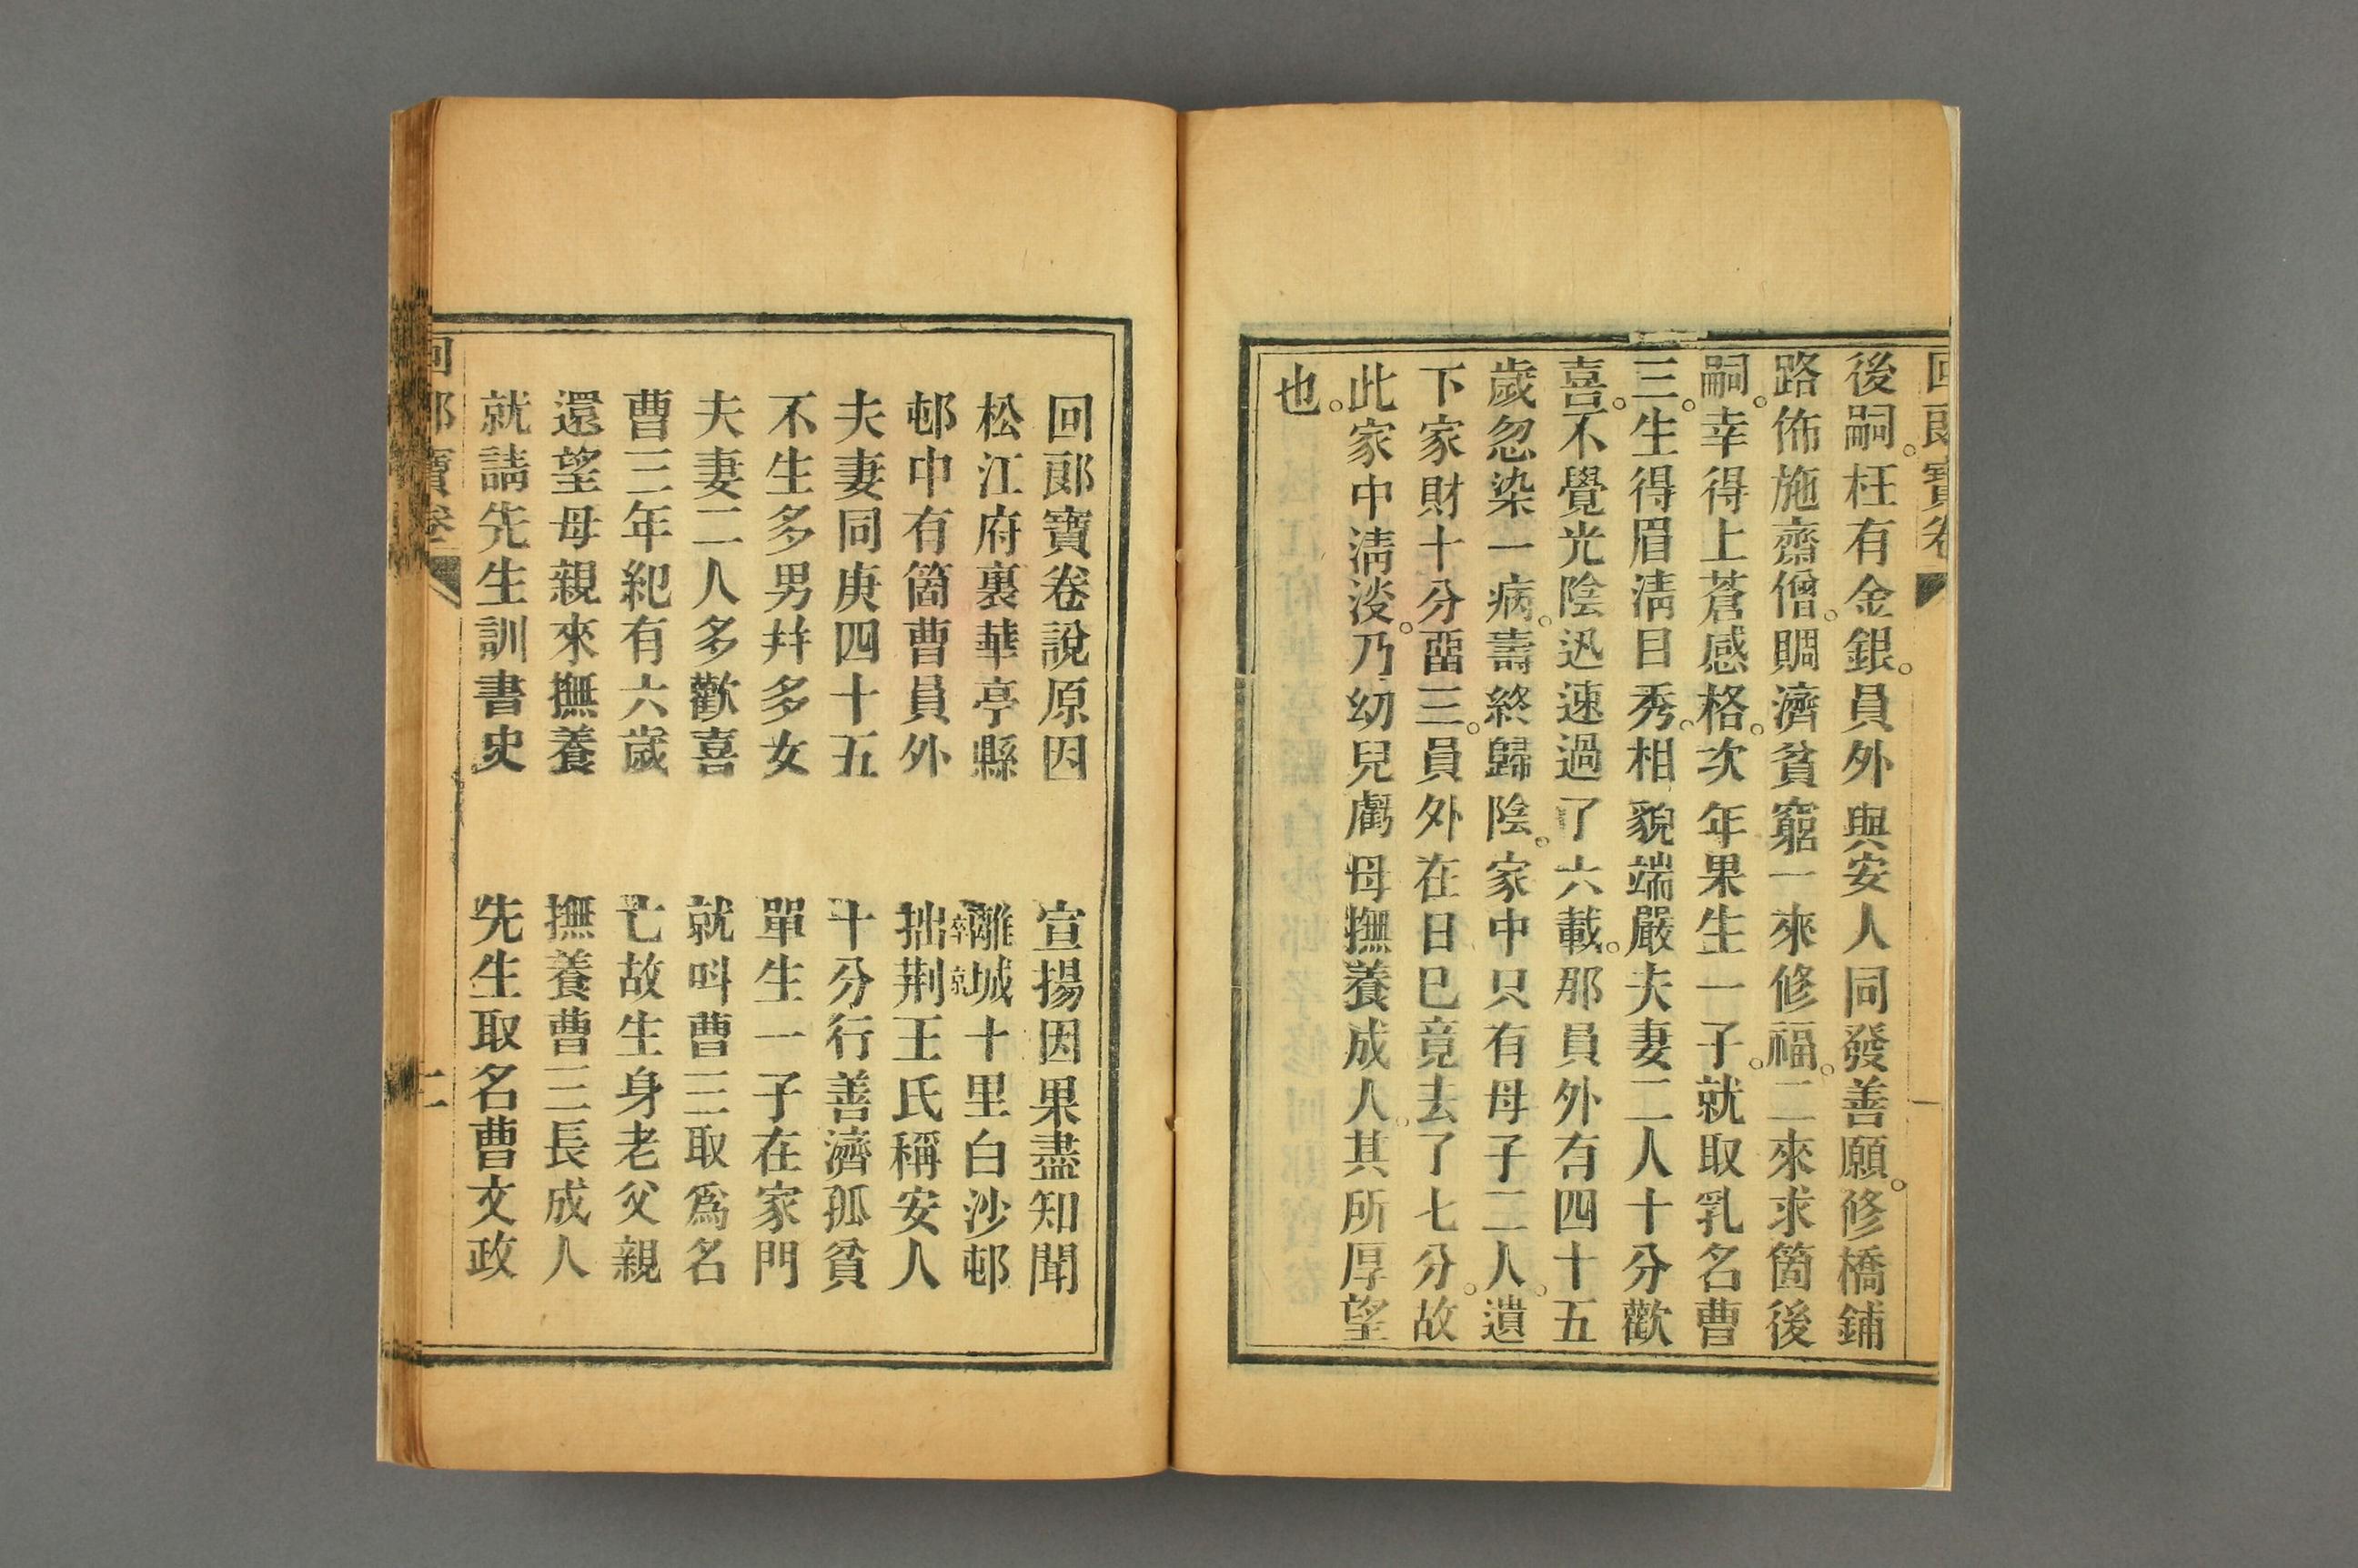 回郎寶卷
一
後嗣。枉有金銀。員外與安人同發善願。修橋鋪
路佈施齋僧。賙濟貧窮一來修福。二來求箇後
嗣。幸得上蒼感格。次年果生一子。就取乳名曹
三。生得眉清目秀。相貌端嚴夫妻二人十分歡
喜。不覺光陰迅速過了六載。那員外有四十五
歲忽染一病。壽終歸陰。家中只有母子二人。遺
下家財十分畱三。員外在日已竟去了七分。故
此家中清淡。乃幼兒虧母撫養成人。其所厚望
也。
回郎寶卷說原因　宣揚因果盡知聞
松江府裏華亭縣　離城十里白沙邨
邨中有箇曹員外　拙荆王氏稱安人
夫妻同庚四十五　十分行善濟孤貧
不生多男并多女　單生一子在家門
夫妻二人多歡喜　就呌曹三取爲名
曹三年紀有六歲　亡故生身老父親
還望母親來撫養　撫養曹三長成人
就請先生訓書史　先生取名曹文政
回郎寶卷
二